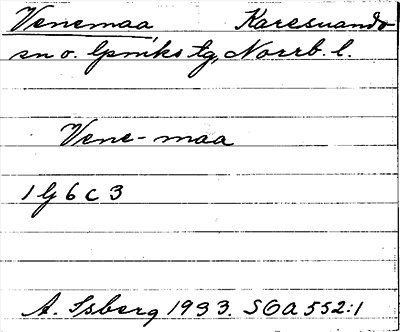 Venemaa Karesuando
sn o. lpmks tg, Norrb. l.
Vene-maa
1 G 6 c 3
A. Isberg 1933. SOA 552:1